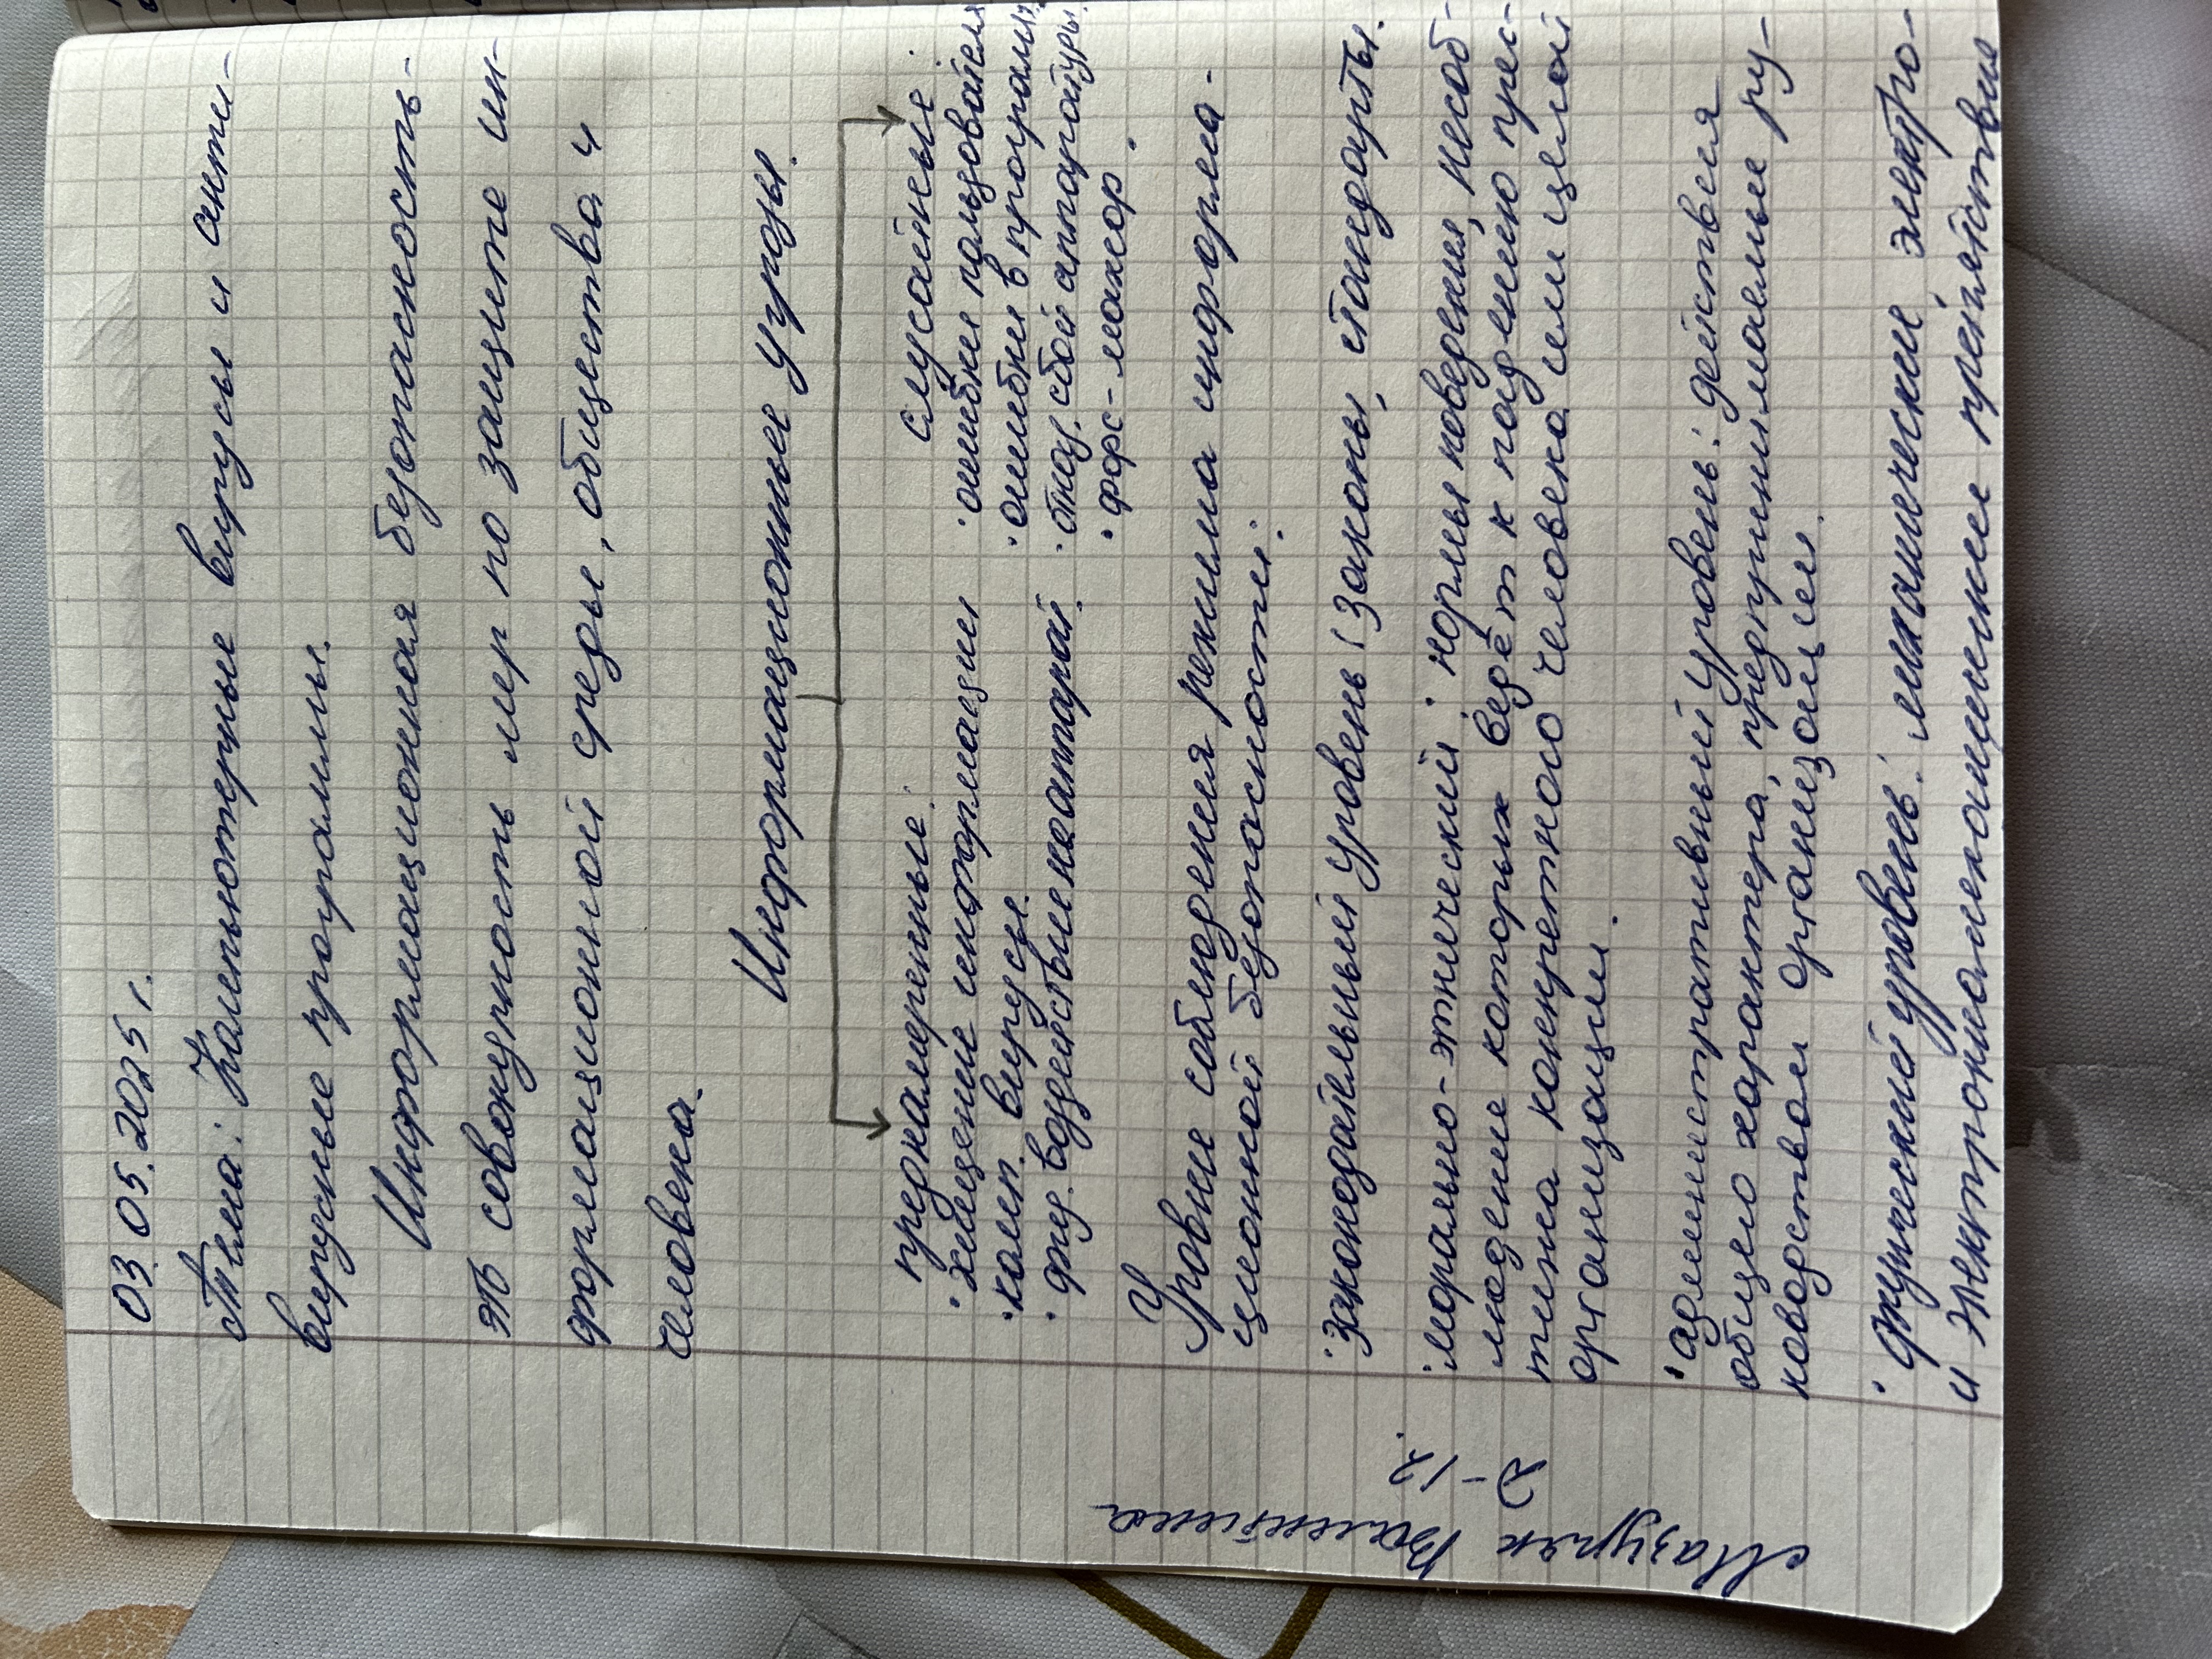 03.05.2025 г.
Тема: Компьютерные вирусы и анти-
вирусные программы.
Информационная безопасность-
это совокупность мер по защите ин-
формационной среды, общества и
человека.
Информационные угрозы.
преднамеренные:
• хищение информации
• комп. вирусы
• физ. воздействие на аппарат.
случайные:
• ошибки пользователя
• ошибки в програмир.
• отказ, сбой аппаратуры
• форс-мажор.
Уровни соблюдения режима информа-
ционной безопасности:
• законодательный уровень (законы, стандарты.
• морально-этнический: нормы поведения, несоб-
людение которых ведёт к падению прес-
тижа конкретного человека или целой
организации.
• административный уровень: действия
общего характера, предпринимаемые ру-
ководством организации.
• физический уровень: механические, электро-
и электронно-механические препятствия
Мазуряк Валентина
2-12.